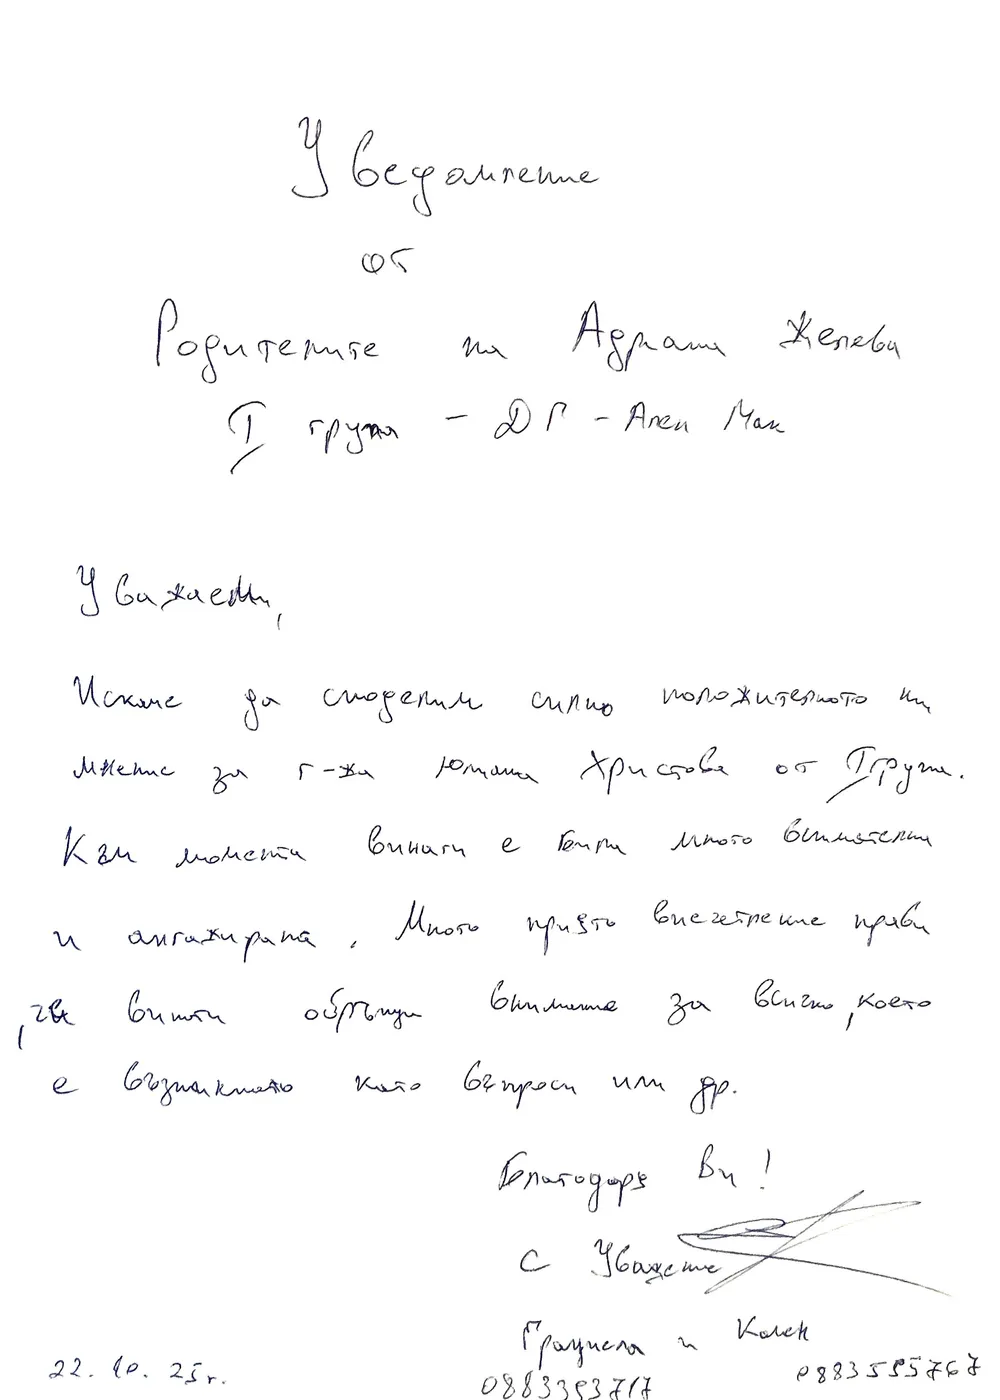 Уведомление
от
Родителите на Адриана Желева
I група - ДГ - Ален Мак
Уважаеми,
Искаме да споделим силно положителното ни
мнение за г-жа Юлиана Христова от I група.
Към момента винаги е била много внимателна
и ангажирана. Много приято впечатление прави
, че винаги обръща внимание за всичко, което
е възникнало като въпроси или др.
Благодаря Ви!
С Уважение
Грациела и Калек
22.10.25г.
0883393717
0883595767